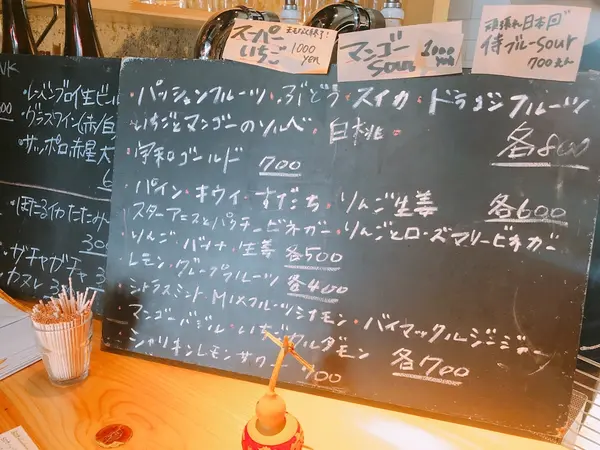 スーパー いちご 1000 yen
マンゴー sour 1000 yen
頑張れ日本!! 侍ブルーsour 700えん
・パッションフルーツ・ぶどう・スイカ・ドラゴンフルーツ
・いちごとマンゴーのソルベ・白桃・ 各800
・宇和ゴールド 700
・パイン・キウイ・すだち・りんご生姜 各600
・スターアニスとパクチービネガー・りんごとローズマリービネガー
・りんご・バナナ・生姜 各500
・レモン・グレープフルーツ 各400
・シトラスミント・MIXフルーツシナモン・バイマックルジンジャー
・マンゴーバジル・いちごカルダモン 各700
・シャリキンレモンサワー 700
レーベンブロイ生ビール
・グラスワイン(赤/白
・サッポロ赤星 大
・ほたるいかたたみ
300
・ガチャガチャ